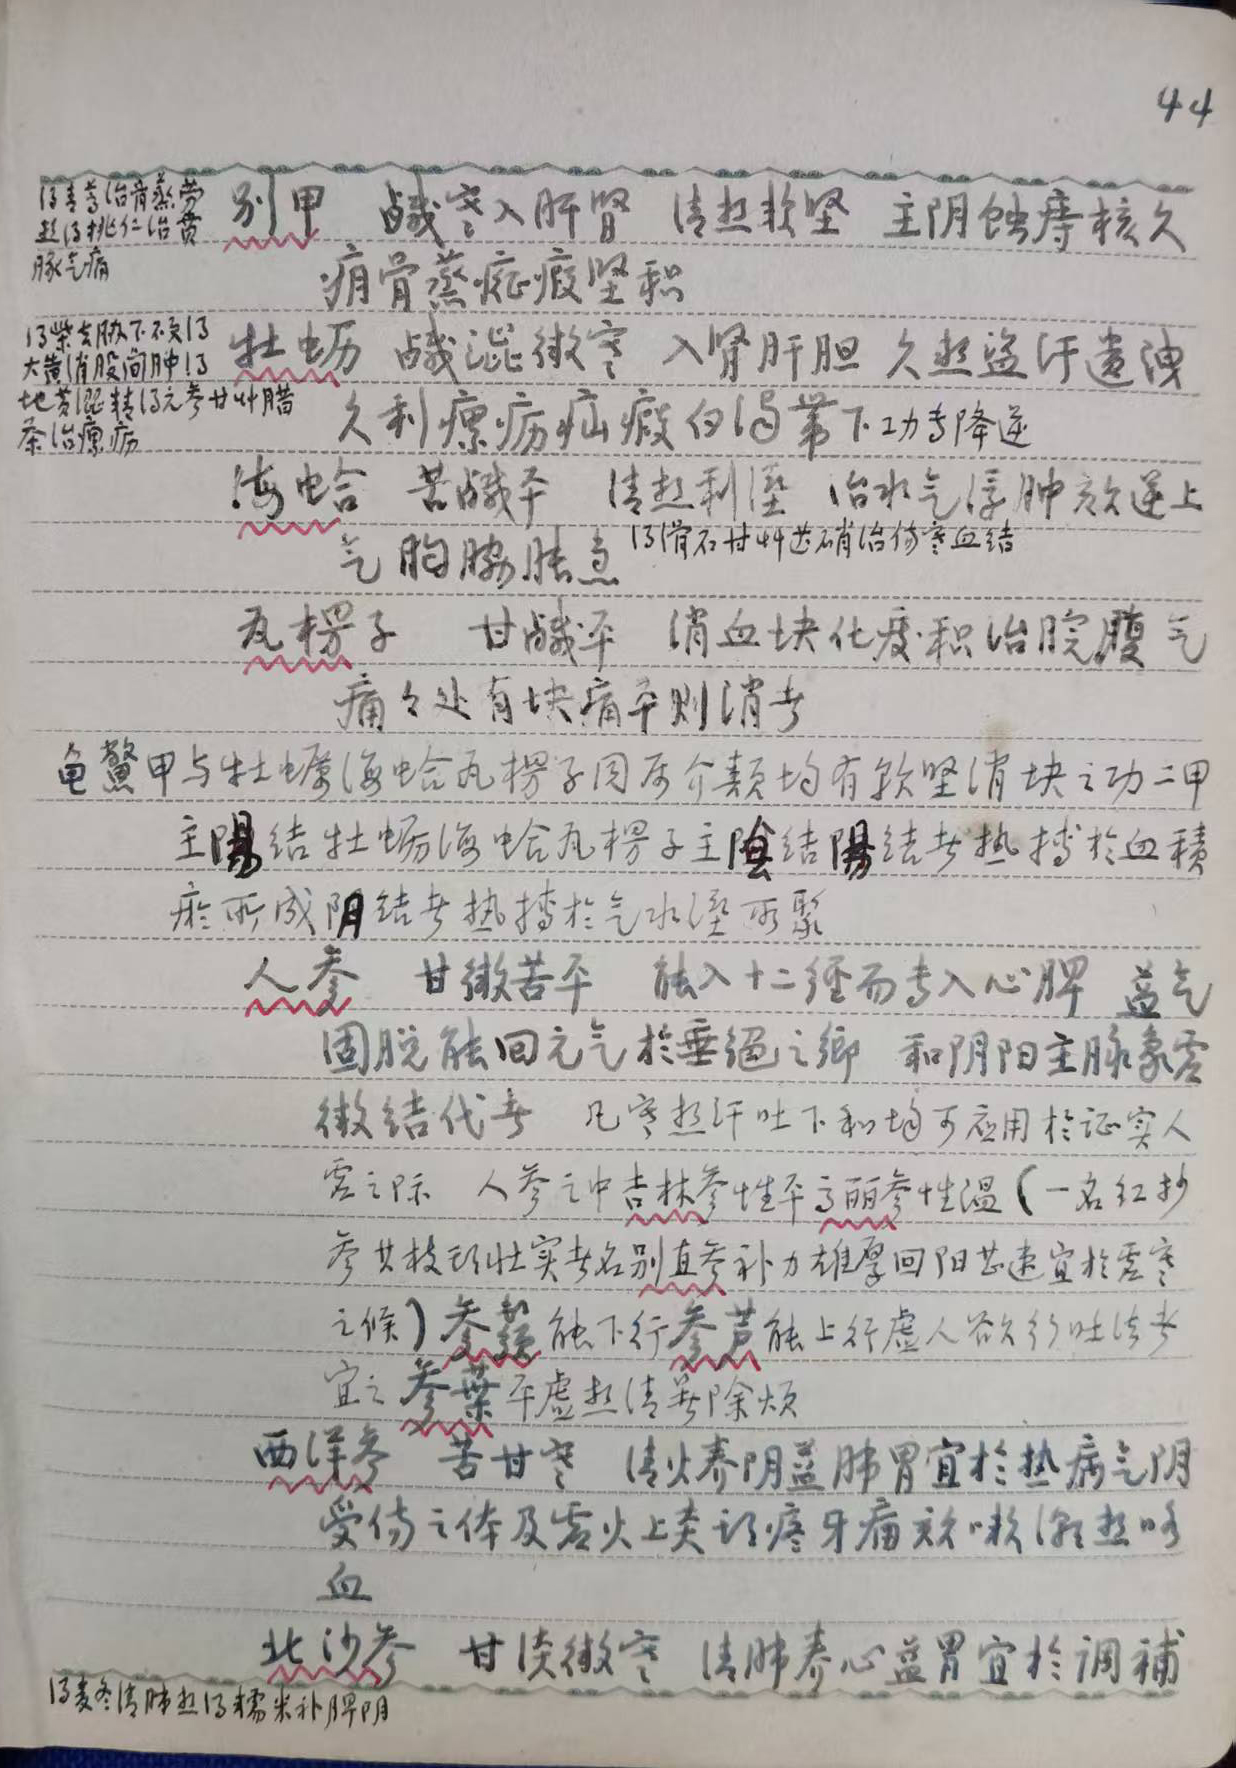 44
得青蒿治骨蒸劳
热得桃仁治贲
豚气痛
别甲 鹹寒入肝肾 清热软坚 主阴蚀痔核久
疟骨蒸症瘕坚积
得柴去胁下不更得
大黄消股间肿得
地黄涩精得元参甘艸腊
茶治瘰疬
牡蛎 鹹涩微寒 入肾肝胆 久热盗汗遗洩
久利瘰疬疝瘕白浊带下功专降逆
海蛤 苦鹹平 清热利溼 治水气浮肿欬逆上
气胸胁胀急 得滑石甘艸芒硝治伤寒血结
瓦楞子 甘鹹平 消血块化痰积治脘腹气
痛々处有块痛平则消者
龟鳖甲与牡蠣海蛤瓦楞子同属介類均有软坚消块之功二甲
主陽结牡蛎海蛤瓦楞子主陰结陽结者热搏於血積
瘀所成阴结者热搏於气水溼所聚
人参 甘微苦平 能入十二經而专入心脾 益气
固脱能回元气於垂絕之鄉 和阴阳主脉象虚
微结代者 凡寒热汗吐下和均可应用於证实人
虚之际 人参之中吉林参性平高丽参性温(一名红抄
参其枝头壮实者名别直参补力雄厚回阳甚速宜於虚寒
之候)参鬚能下行参芦能上行虚人欲行吐法者
宜之参葉平虚热清暑除烦
西洋参 苦甘寒 清火养阴益肺胃宜於热病气阴
受伤之体及虚火上炎头疼牙痛欬嗽潮热咯
血
北沙参 甘淡微寒 清肺养心益胃宜於调補
得麦冬清肺热得糯米补脾阴